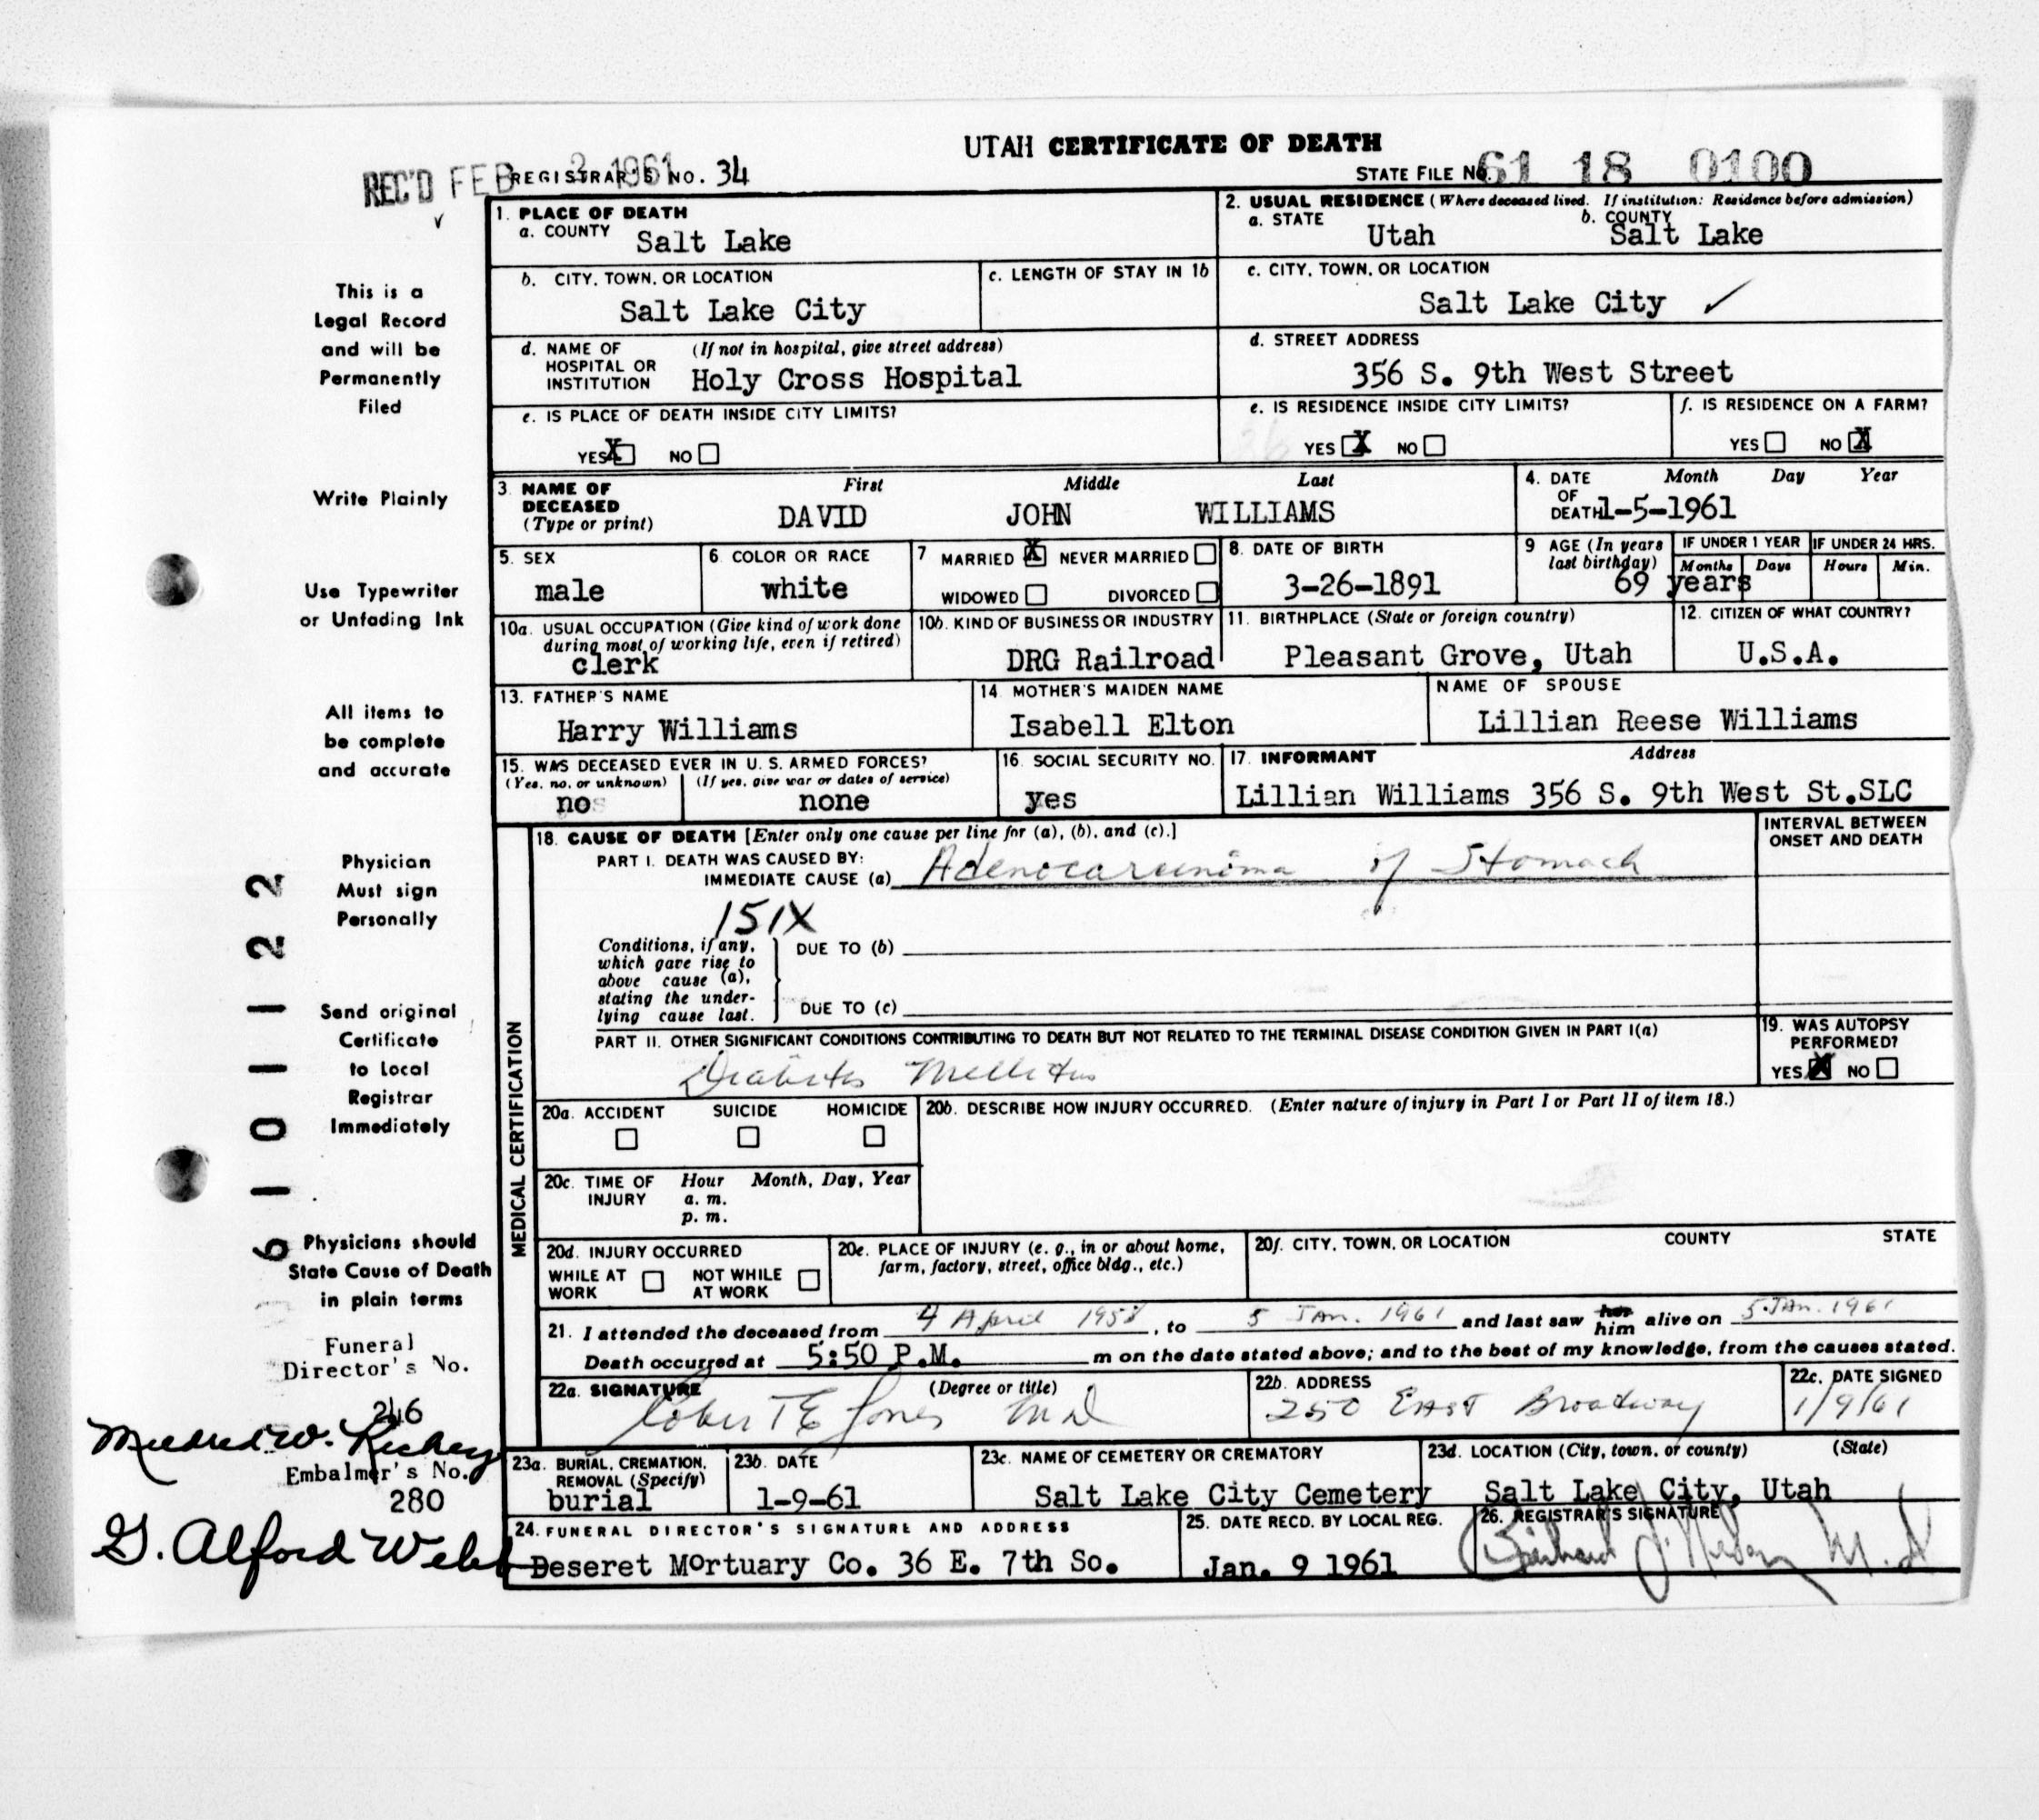 UTAH CERTIFICATE OF DEATH
REC'D FEB 2 1961 REGISTRAR'S NO. 34
STATE FILE NO. 61 18 0100
This is a
Legal Record
and will be
Permanently
Filed
Write Plainly
Use Typewriter
or Unfading Ink
All items to
be complete
and accurate
Physician
Must sign
Personally
Send original
Certificate
to Local
Registrar
Immediately
Physicians should
State Cause of Death
in plain terms
61-01-122
Funeral
Director's No.
246
Mildred W. Richey
Embalmer's No.
280
G. Alford Webb
1. PLACE OF DEATH
a. COUNTY Salt Lake
2. USUAL RESIDENCE (Where deceased lived. If institution: Residence before admission)
a. STATE Utah b. COUNTY Salt Lake
b. CITY, TOWN, OR LOCATION
Salt Lake City
c. LENGTH OF STAY IN 1b
c. CITY, TOWN, OR LOCATION
Salt Lake City ✓
d. NAME OF HOSPITAL OR INSTITUTION (If not in hospital, give street address)
Holy Cross Hospital
d. STREET ADDRESS
356 S. 9th West Street
e. IS PLACE OF DEATH INSIDE CITY LIMITS?
YES X NO
e. IS RESIDENCE INSIDE CITY LIMITS?
YES X NO
f. IS RESIDENCE ON A FARM?
YES NO X
3. NAME OF DECEASED (Type or print) First Middle Last
DAVID JOHN WILLIAMS
4. DATE OF DEATH Month Day Year
1-5-1961
5. SEX
male
6. COLOR OR RACE
white
7 MARRIED X NEVER MARRIED
WIDOWED DIVORCED
8. DATE OF BIRTH
3-26-1891
9 AGE (In years last birthday)
69 years
IF UNDER 1 YEAR
Months Days
IF UNDER 24 HRS.
Hours Min.
10a. USUAL OCCUPATION (Give kind of work done during most of working life, even if retired)
clerk
10b. KIND OF BUSINESS OR INDUSTRY
DRG Railroad
11. BIRTHPLACE (State or foreign country)
Pleasant Grove, Utah
12. CITIZEN OF WHAT COUNTRY?
U.S.A.
13. FATHER'S NAME
Harry Williams
14. MOTHER'S MAIDEN NAME
Isabell Elton
NAME OF SPOUSE
Lillian Reese Williams
15. WAS DECEASED EVER IN U. S. ARMED FORCES?
(Yes, no, or unknown) (If yes, give war or dates of service)
no none
16. SOCIAL SECURITY NO.
yes
17. INFORMANT Address
Lillian Williams 356 S. 9th West St.SLC
MEDICAL CERTIFICATION
18. CAUSE OF DEATH [Enter only one cause per line for (a), (b), and (c).]
PART I. DEATH WAS CAUSED BY:
IMMEDIATE CAUSE (a) Adenocarcinoma of Stomach
INTERVAL BETWEEN ONSET AND DEATH
151X
Conditions, if any, which gave rise to above cause (a), stating the underlying cause last.
DUE TO (b)
DUE TO (c)
PART II. OTHER SIGNIFICANT CONDITIONS CONTRIBUTING TO DEATH BUT NOT RELATED TO THE TERMINAL DISEASE CONDITION GIVEN IN PART I(a)
Diabetes Mellitus
19. WAS AUTOPSY PERFORMED?
YES X NO
20a. ACCIDENT SUICIDE HOMICIDE
20b. DESCRIBE HOW INJURY OCCURRED. (Enter nature of injury in Part I or Part II of item 18.)
20c. TIME OF INJURY Hour Month, Day, Year
a. m.
p. m.
20d. INJURY OCCURRED
WHILE AT WORK NOT WHILE AT WORK
20e. PLACE OF INJURY (e. g., in or about home, farm, factory, street, office bldg., etc.)
20f. CITY, TOWN, OR LOCATION COUNTY STATE
21. I attended the deceased from 4 April 1958, to 5 JAN. 1961 and last saw her him alive on 5 JAN. 1961
Death occurred at 5:50 P.M. m on the date stated above; and to the best of my knowledge, from the causes stated.
22a. SIGNATURE (Degree or title)
Robert E Jones MD
22b. ADDRESS
250 EAST Broadway
22c. DATE SIGNED
1/9/61
23a. BURIAL, CREMATION, REMOVAL (Specify)
burial
23b. DATE
1-9-61
23c. NAME OF CEMETERY OR CREMATORY
Salt Lake City Cemetery
23d. LOCATION (City, town, or county) (State)
Salt Lake City, Utah
24. FUNERAL DIRECTOR'S SIGNATURE AND ADDRESS
Deseret Mortuary Co. 36 E. 7th So.
25. DATE RECD. BY LOCAL REG.
Jan. 9 1961
26. REGISTRAR'S SIGNATURE
M.D